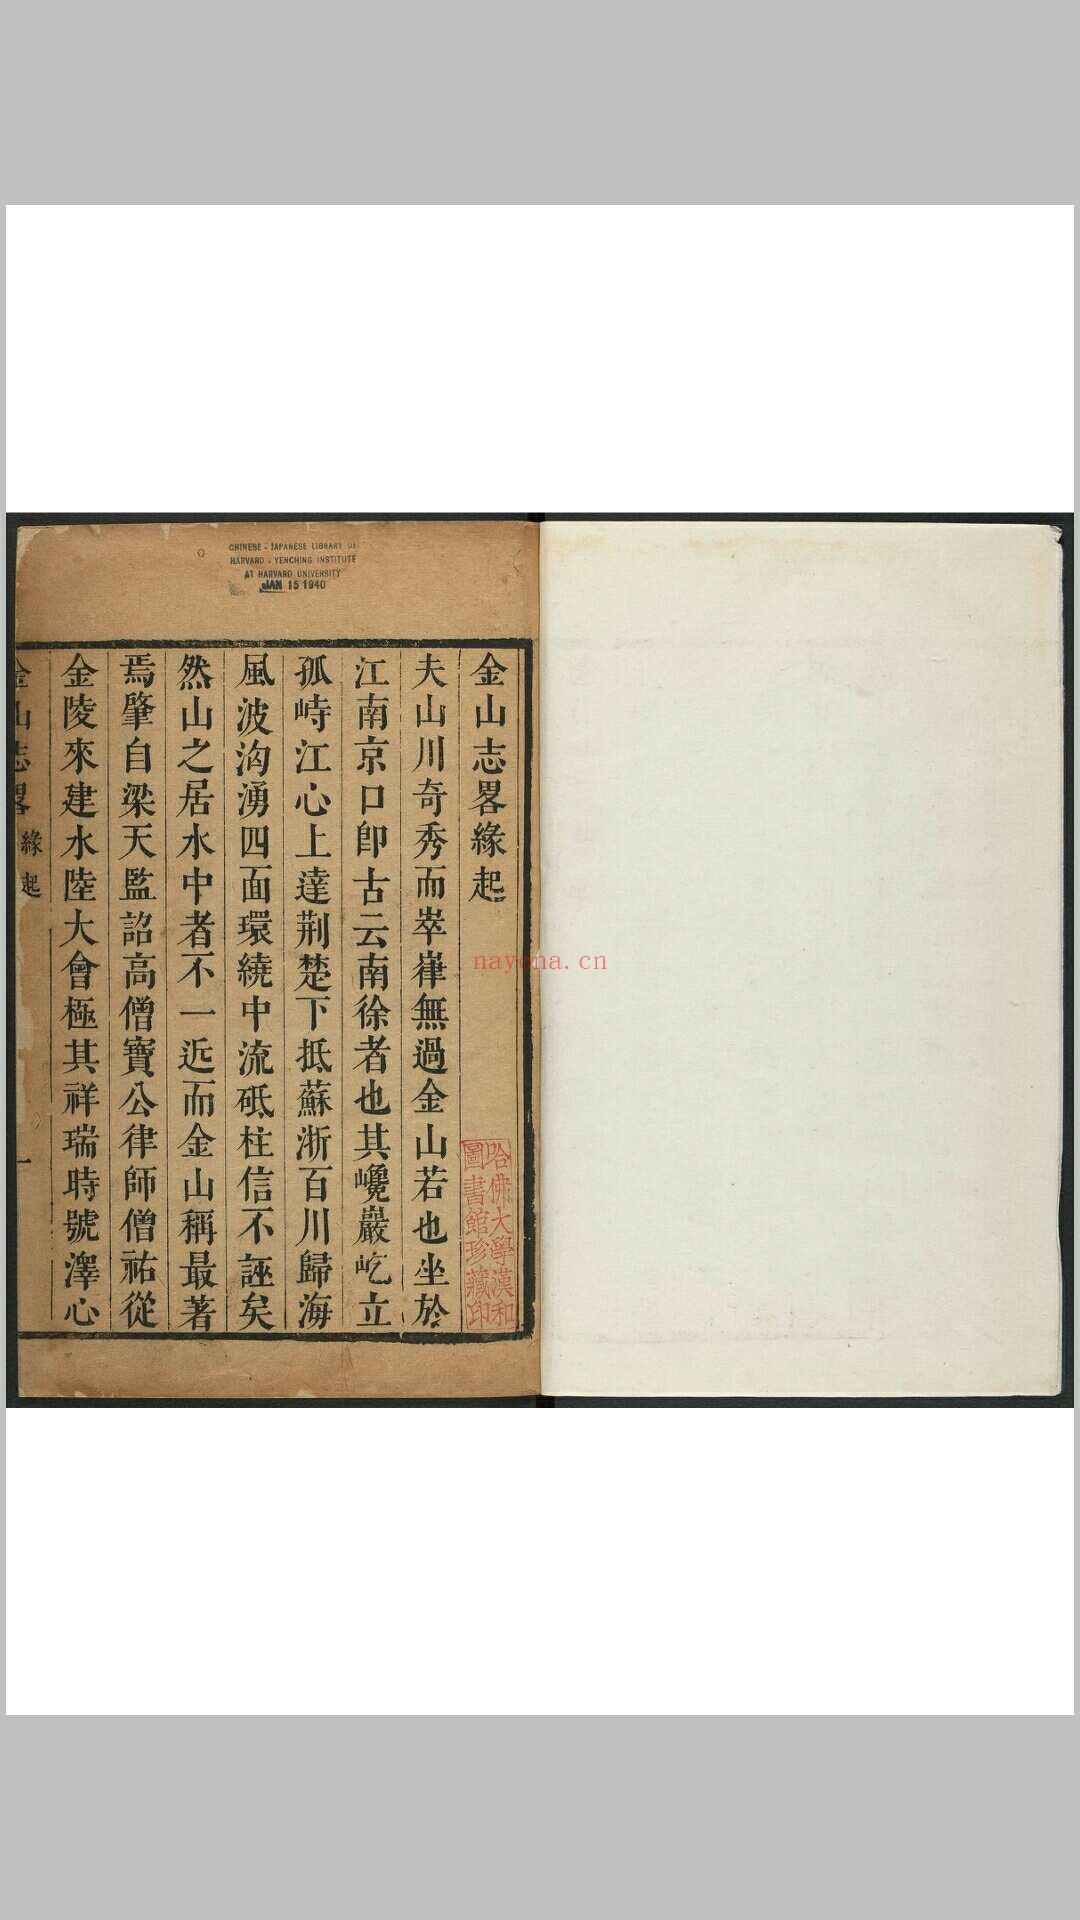 CHINESE - JAPANESE LIBRARY OF
HARVARD - YENCHING INSTITUTE
AT HARVARD UNIVERSITY
JAN 15 1940
金山志畧緣起
夫山川奇秀而崒嵂無過金山若也坐於
江南京口卽古云南徐者也其巉巖屹立
孤峙江心上達荆楚下抵蘇浙百川歸海
風波洶湧四面環繞中流砥柱信不誣矣
然山之居水中者不一近而金山稱最著
焉肇自梁天監詔高僧寶公律師僧祐從
金陵來建水陸大會極其祥瑞時號澤心
金山志畧 緣起 一
哈佛大學漢和
圖書館珍藏印
nayona.cn